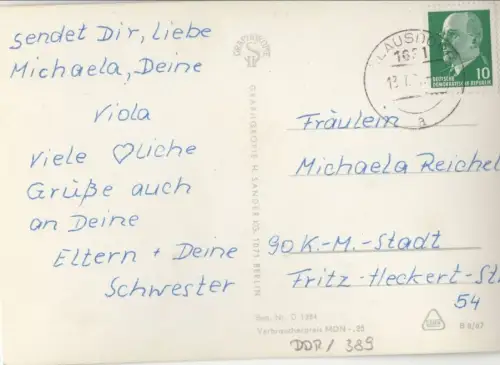 sendet Dir, liebe
Michaela, Deine
Viola
Viele ♡liche
Grüße auch
an Deine
Eltern + Deine
Schwester
GRAPHOKOPIE
GRAPHOKOPIE H. SANDER KG, 1071 BERLIN
KLAUSDORF
1631
a
10
DEUTSCHE
DEMOKRATISCHE REPUBLIK
Fräulein
Michaela Reichel
90 K.-M.-Stadt
Fritz-Heckert-St
54
Best.-Nr. O 1284
Verbraucherpreis MDN -,25
B 8/67
DDR/ 389